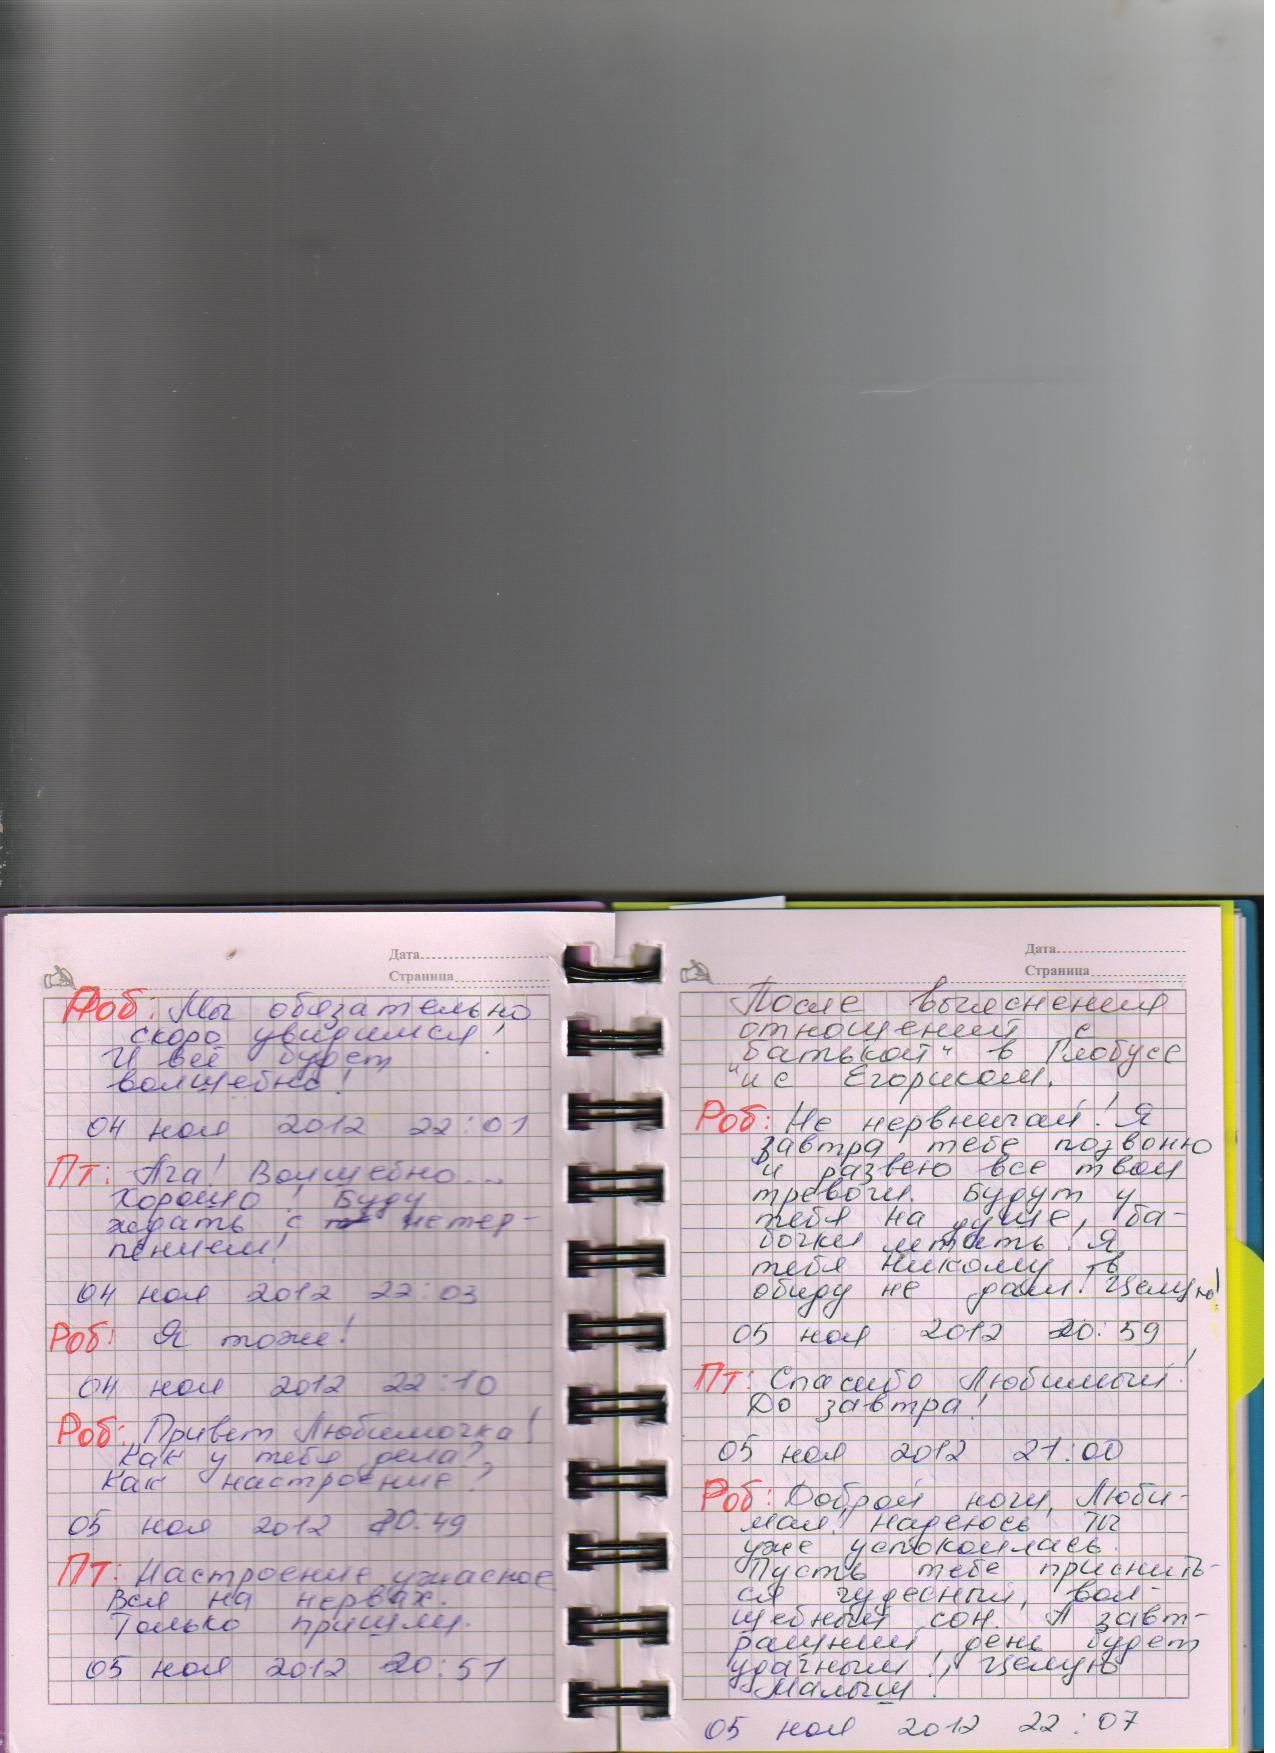 Дата
Страница
Роб: Мы обязательно
скоро увидимся!
И всё будет
волшебно!
04 ноя 2012 22:01
Пт: Ага! Волшебно...
Хорошо! Буду
ждать с нетер-
пением!
04 ноя 2012 22:03
Роб: Я тоже!
04 ноя 2012 22:10
Роб: Привет Любимочка!
Как у тебя дела?
Как настроение?
05 ноя 2012 20:49
Пт: Настроение ужасное
Вся на нервах.
Только пришли.
05 ноя 2012 20:51
Дата
Страница
После выяснения
отношений с
"батькой" в Глобусе
и с Егориком.
Роб: Не нервничай! Я
завтра тебе позвоню
и развею все твои
тревоги. Будут у
тебя на душе, ба-
бочки летать! Я
тебя никому в
обиду не дам! Целую!
05 ноя 2012 20:59
Пт: Спасибо Любимый!
До завтра!
05 ноя 2012 21:00
Роб: Доброй ночи, Люби-
мая! Надеюсь ты
уже успокоилась.
Пусть тебе приснить-
ся чудесный, вол-
шебный сон. А завт-
рашний день будет
удачным! Целую
Малыш!
05 ноя 2012 22:07